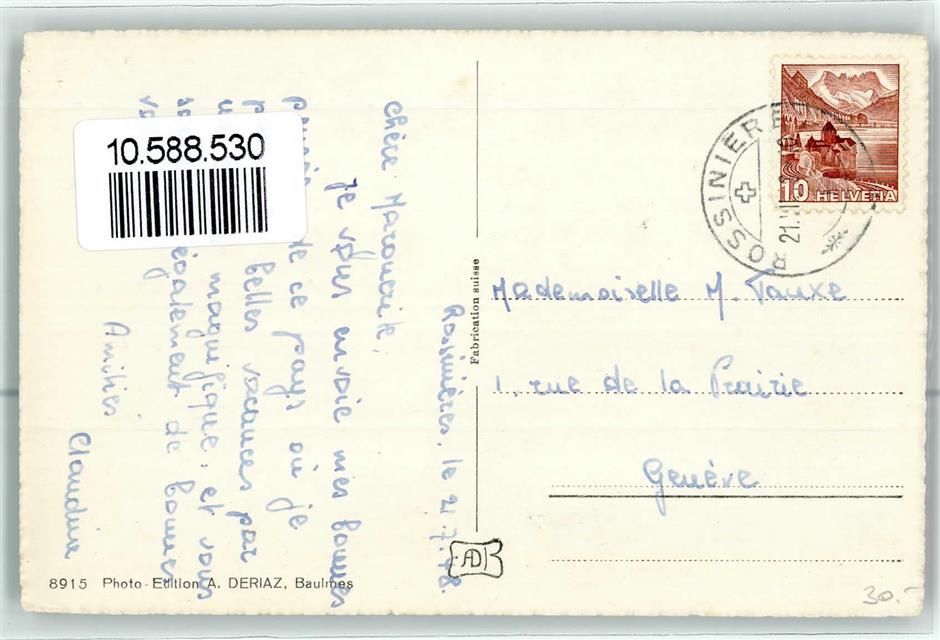 Rossinières, le 21.7.48.
Chère Marguerite,
Je vous envoie mes bonnes
de ce pays où je
belles vacances par
magnifique, et vous
également de bonnes
Amitiés
Claudine
10.588.530
Fabrication suisse
ROSSINIERE
21.
10 HELVETIA
Mademoiselle M. Tauxe
1, rue de la Prairie
Genève
AD
8915 Photo-Edition A. DERIAZ, Baulmes
30.-